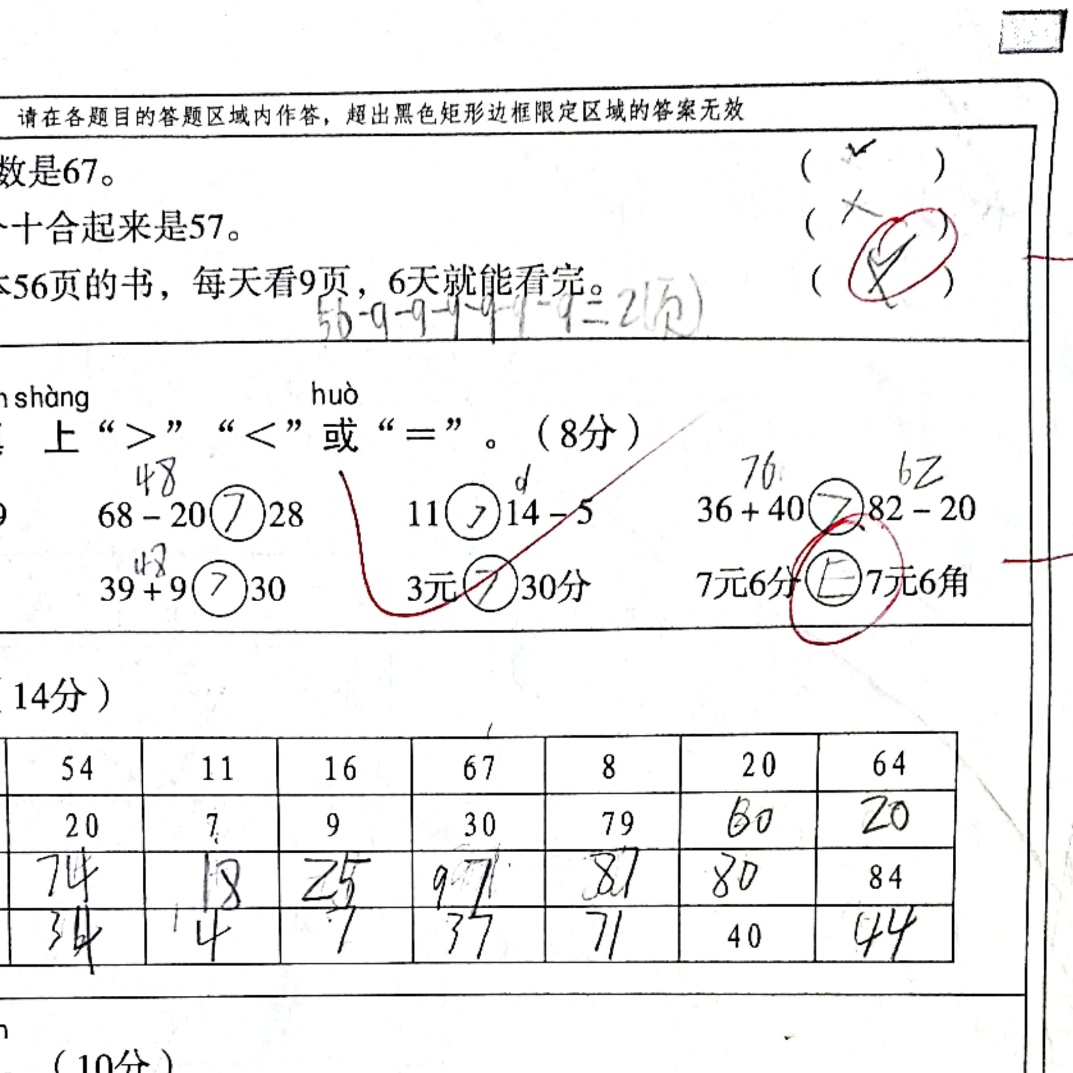 请在各题目的答题区域内作答，超出黑色矩形边框限定区域的答案无效
数是67。 （ ✓ ）
个十合起来是57。 （ × ）
本56页的书，每天看9页，6天就能看完。 （ ）
56-9-9-9-9-9-9=2(页)
shàng huò
上“>”“<”或“=”。（8分）
48 76 62
9 68－20>28 11>14－5 36＋40>82－20
48
39＋9>30 3元>30分 7元6分=7元6角
（14分）
54 11 16 67 8 20 64
20 7 9 30 79 60 20
74 18 25 97 87 80 84
34 4 7 37 71 40 44
（10分）